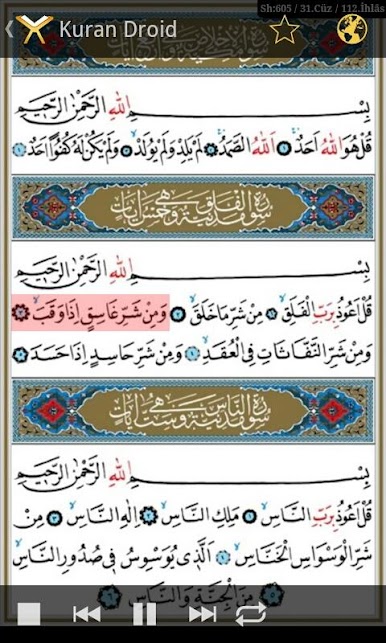 Sh:605 / 31.Cüz / 112.İhlâs
Kuran Droid
بِسْــــمِ اللهِ الرَّحْمٰنِ الرَّحِيمِ
قُلْ هُوَ اللهُ اَحَدٌ ١ اَللهُ الصَّمَدُ ٢ لَمْ يَلِدْ وَلَمْ يُولَدْ ٣ وَلَمْ يَكُنْ لَهُ كُفُوًا اَحَدٌ ٤
سُورَةُ الْفَلَقِ مَدَنِيَّةٌ وَهِيَ خَمْسُ اٰيَاتٍ
بِسْــــمِ اللهِ الرَّحْمٰنِ الرَّحِيمِ
قُلْ اَعُوذُ بِرَبِّ الْفَلَقِ ١ مِنْ شَرِّ مَا خَلَقَ ٢ وَمِنْ شَرِّ غَاسِقٍ اِذَا وَقَبَ ٣
وَمِنْ شَرِّ النَّفَّاثَاتِ فِي الْعُقَدِ ٤ وَمِنْ شَرِّ حَاسِدٍ اِذَا حَسَدَ ٥
سُورَةُ النَّاسِ مَدَنِيَّةٌ وَهِيَ سِتُّ اٰيَاتٍ
بِسْــــمِ اللهِ الرَّحْمٰنِ الرَّحِيمِ
قُلْ اَعُوذُ بِرَبِّ النَّاسِ ١ مَلِكِ النَّاسِ ٢ اِلٰهِ النَّاسِ ٣ مِنْ
شَرِّ الْوَسْوَاسِ الْخَنَّاسِ ٤ اَلَّذِي يُوَسْوِسُ فِي صُدُورِ النَّاسِ
٥ مِنَ الْجِنَّةِ وَالنَّاسِ ٦